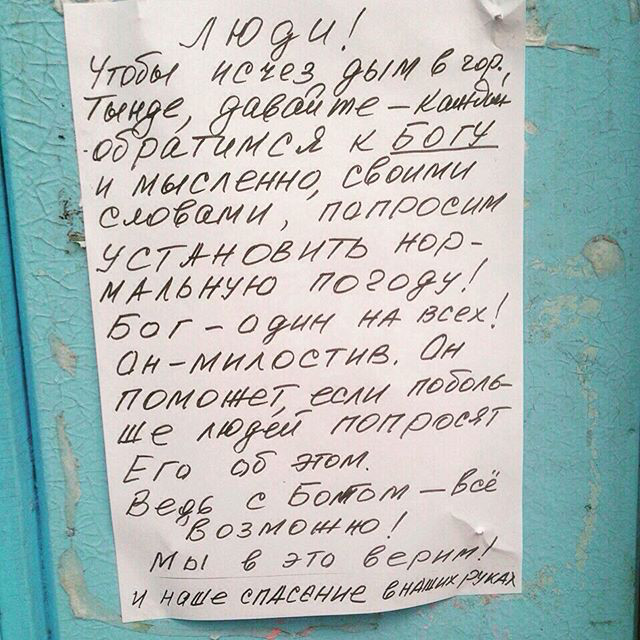 ЛЮДИ!
Чтобы исчез дым в гор.
Тынде, давайте – каждый
обратимся к БОГУ
и мысленно, своими
словами, попросим
УСТАНОВИТЬ нор-
мальную погоду!
Бог – один на всех!
Он – милостив. Он
поможет, если поболь-
ше людей попросят
Его об этом.
Ведь с Богом – всё
возможно!
Мы в это верим!
и наше спасение в наших руках